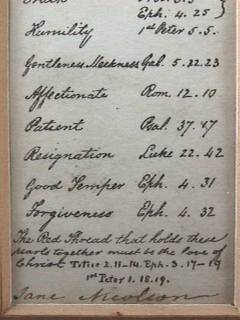 Truth
Eph. 4. 25
Humility 1st Peter 5. 5.
Gentleness Meekness Gal. 5. 22. 23
Affectionate Rom 12. 10
Patient Psal. 37. 17
Resignation Luke 22. 42
Good Temper Eph. 4. 31
Forgiveness Eph. 4. 32
The Red Thread that holds these
pearls together must be the love of
Christ Titus 2. 11-14. Eph. 3. 17-19
1st Peter 1. 18. 19.
Jane Nicolson